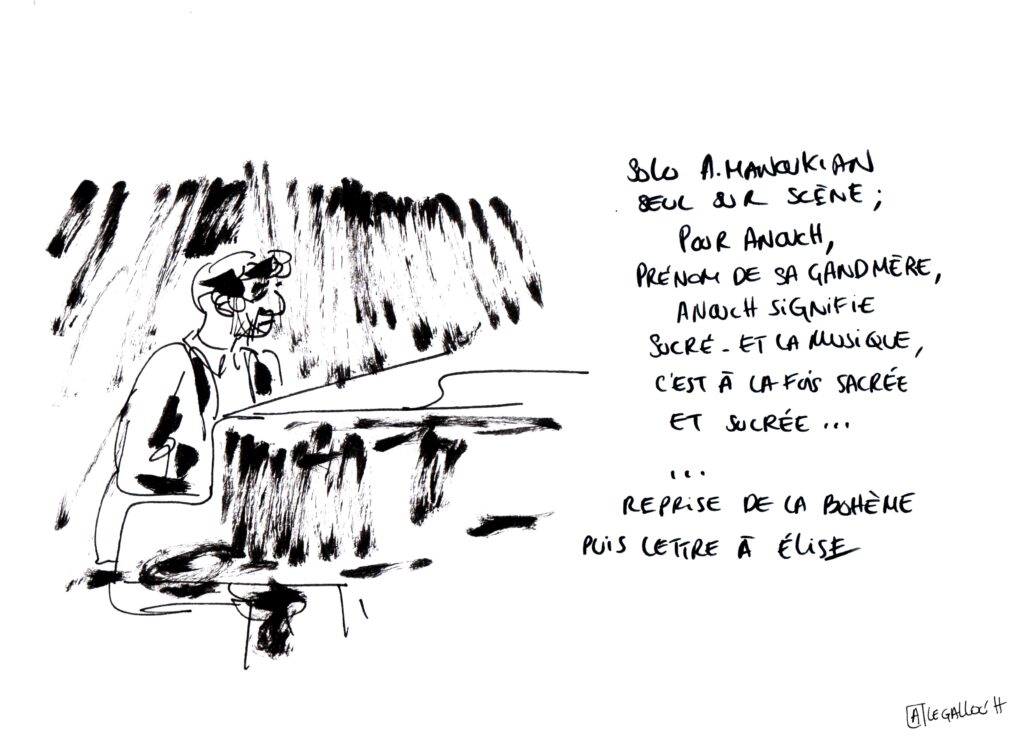 SOLO A. MANOUKIAN
SEUL SUR SCÈNE ;
POUR ANOUCH,
PRÉNOM DE SA GANDMÈRE,
ANOUCH SIGNIFIE
SUCRÉ - ET LA MUSIQUE,
C'EST À LA FOIS SACRÉE
ET SUCRÉE ...
...
REPRISE DE LA BOHÈME
PUIS LETTRE À ÉLISE
A LEGALLOC'H